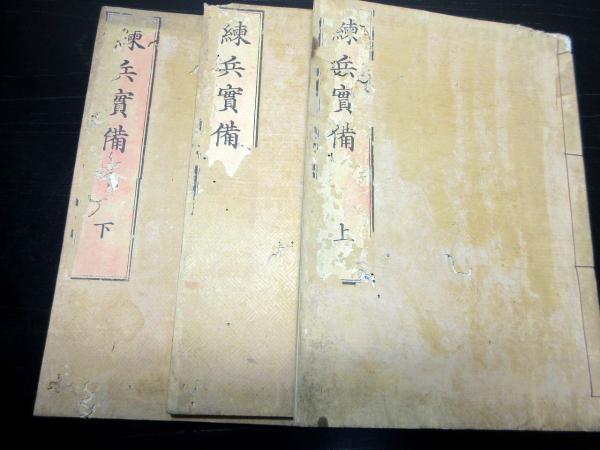 練兵實備
上
練兵實備
練兵實備
下